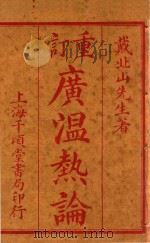 戴北山先生著
重訂
廣温熱論
上海千頃堂書局印行